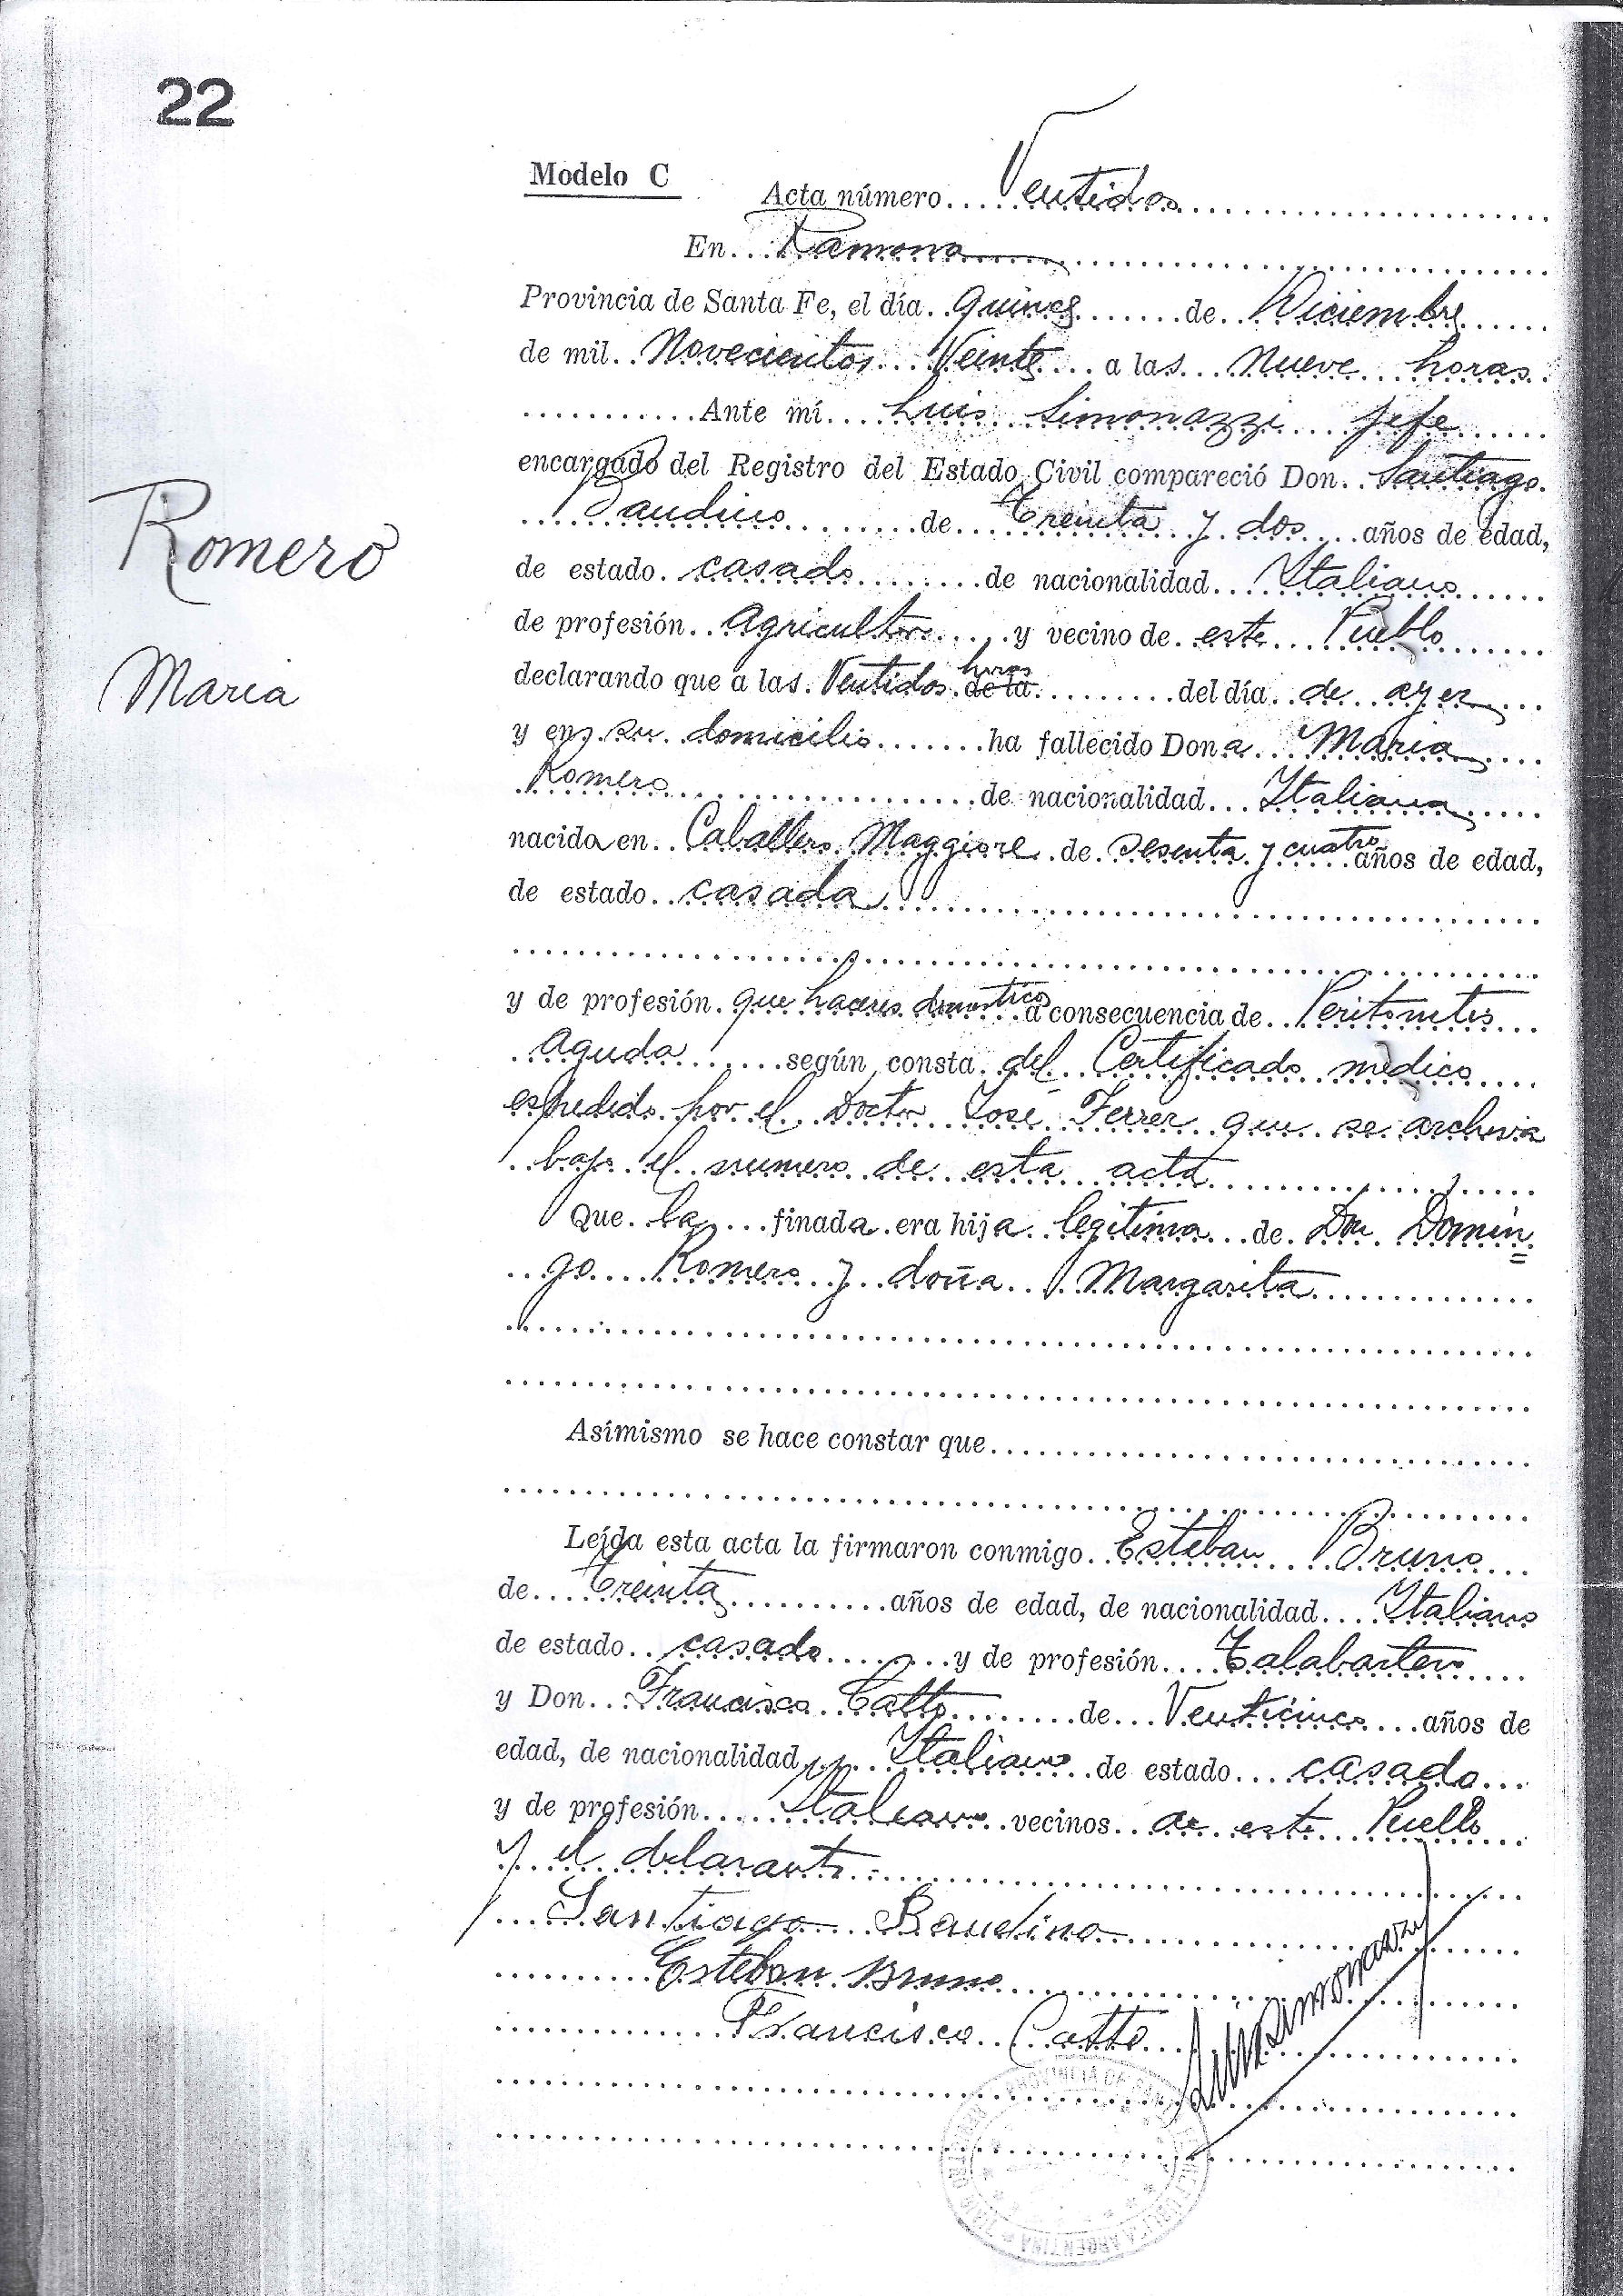 22
Modelo C
Acta número Ventidos
En Ramona
Provincia de Santa Fe, el día quince de Diciembre
de mil Novecientos Veinte a las Nueve horas
Ante mí Luis Simonazzi Jefe
encargado del Registro del Estado Civil compareció Don Santiago
Baudino de Treinta y dos años de edad,
Romero
de estado casado de nacionalidad Italiano
de profesión agricultor y vecino de este Pueblo
Maria
declarando que a las Ventidos horas de la del día de ayer
y en su domicilio ha fallecido Dona Maria
Romero de nacionalidad Italiana
nacida en Caballero Maggiore de sesenta y cuatro años de edad,
de estado casada
y de profesión que haceres domestico a consecuencia de Peritonitis
Aguda según consta del Certificado medico
espedido por el Doctor José Ferrer que se archiva
bajo el numero de esta acta
Que la finada era hija legitima de Don Domin=
go Romero y doña Margarita
Asimismo se hace constar que
Leída esta acta la firmaron conmigo Esteban Bruno
de Treinta años de edad, de nacionalidad Italiano
de estado casado y de profesión Talabartero
y Don Francisco Catto de Venticinco años de
edad, de nacionalidad Italiano de estado casado
y de profesión Italiano vecinos de este Pueblo
y el delarante
Santiago Baudino
Esteban Bruno
Francisco Catto
Luis Simonazzi
PROVINCIA DE
ARGENTINA